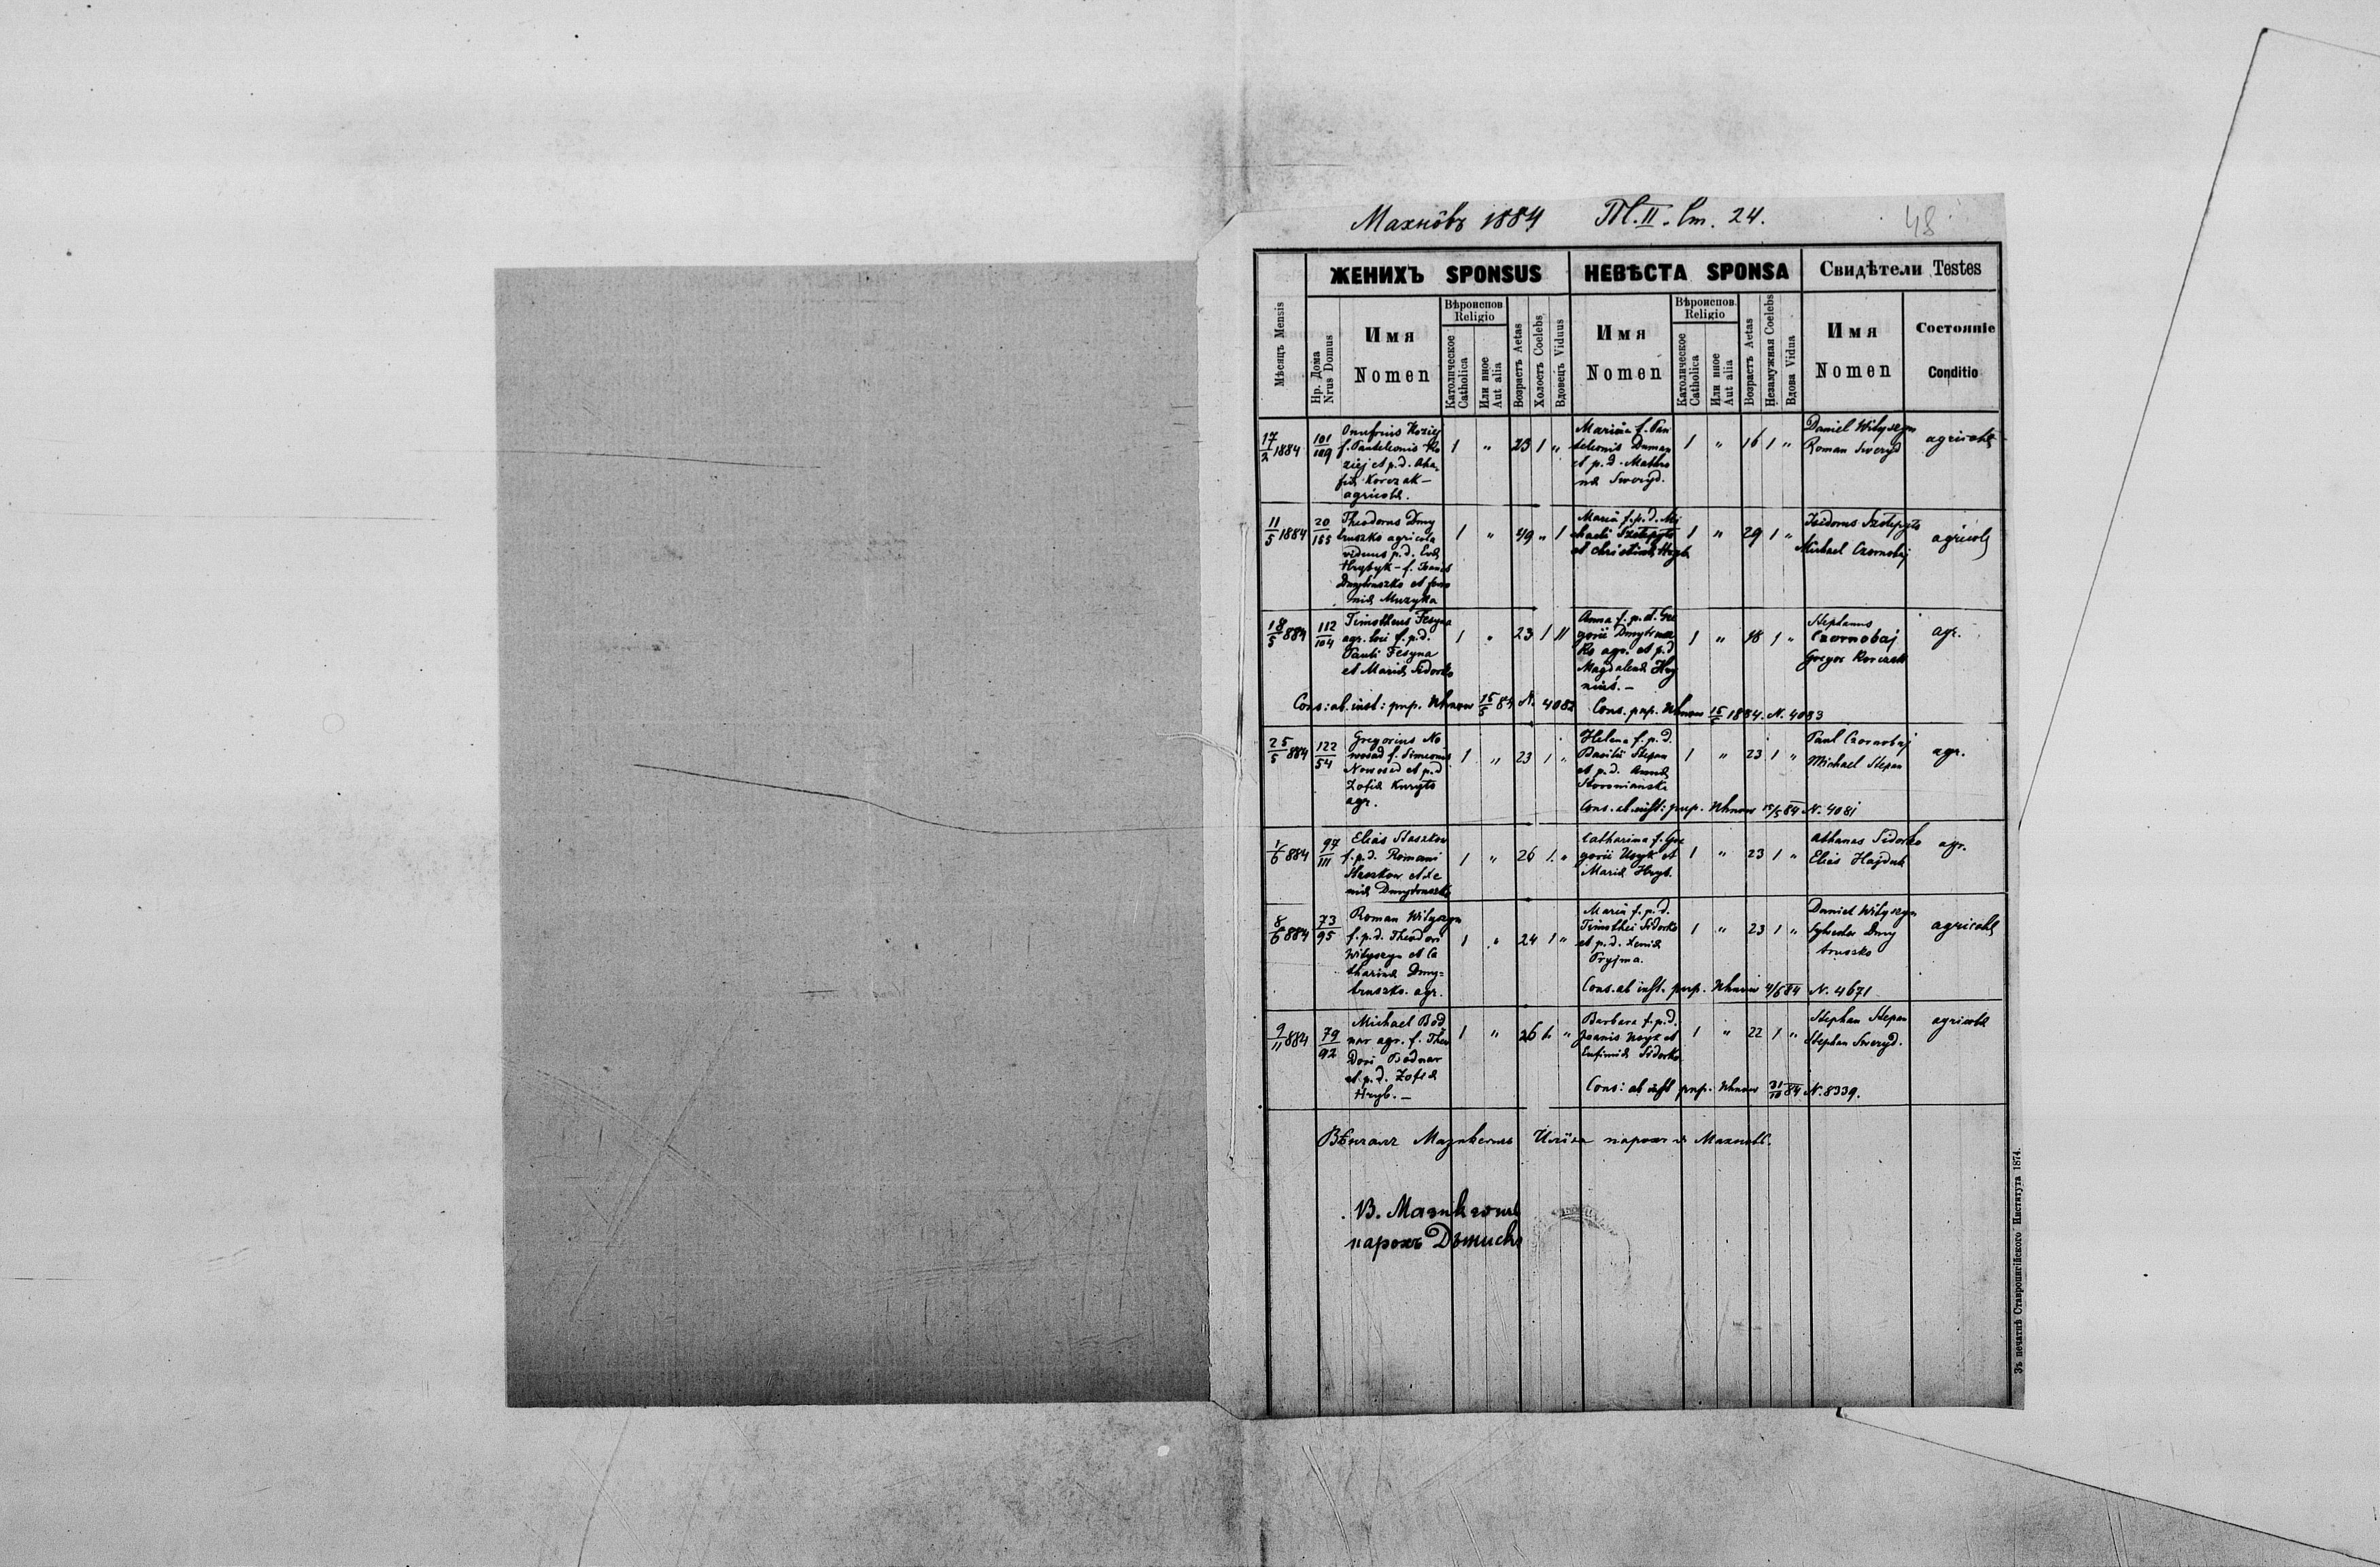 Махнôвъ 1884 Тl. II. Cm. 24.
48
Мѣсяцъ Mensis
ЖЕНИХЪ SPONSUS
НЕВѢСТА SPONSA
Свидѣтели Testes
Нр. Дома
Nrus Domus
Имя
Nomen
Вѣроиспов
Religio
Католическое
Catholica
Или иное
Aut alia
Возрастъ Aetas
Холостъ Coelebs
Вдовецъ Viduus
Имя
Nomen
Вѣроиспов.
Religio
Католическое
Catholica
Или иное
Aut alia
Возрастъ Aetas
Незамужная Coelebs
Вдова Vidua
Имя
Nomen
Состояніе
Conditio
17/2 1884
101/189
Onufrius Koziej
f. Panteleonis Ko
ziej et p.d. Aha
fiæ Korczak –
agricolæ.
1 " 23 1 "
Maria f. Pan
teleonis Duman
et p.d. Mathro
næ Sweryd.
1 " 16 1 "
Daniel Wityszyn
Roman Sweryd
agricolæ
11/5 1884
20/155
Theodorus Dmy
truszko agricola
viduus p.d. Evæ
Hrybyk – f. Ioanis
Dmytruszko et
Muzyka
1 " 49 " 1
Maria f.p.d. Mi
chaeli Szolopyto
et Christinæ Hryb
1 " 29 1 "
Isidorus Szolopyto
Michael Czornobaj
agricolæ
18/5 884
112/104
Timotheus Fesyna
agr. f.p.d.
Pauli Fesyna
et Mariæ Sidorko
1 " 23 1 "
Anna f.p.d. Gre
gorii Dmytrusz
ko agr. et p.d
Magdalenæ Hry
niuś. –
1 " 18 1 "
Stephanus
Czornobaj
Gregor Korczak
agr.
Cons: ab inst: pup. Uhnow 15/5 84 N. 4082
Cons. pup. Uhnow 15/5 1884. N. 4083
25/5 884
122/54
Gregorius No
wosad f. Simeonis
Nowosad et p.d
Zofiæ Kuryto
agr.
1 " 23 1 "
Helena f.p.d.
Basilii Stepan
et p.d. Annæ
1 " 23 1 "
Paul Czornobaj
Michael Stepan
agr.
Cons. ab inst: pup. Uhnow 15/5 84 N. 4081
1/6 884
97/111
Elias Staszkow
f.p.d. Romani
Staszkow et Xe
niæ Dmytruszko
1 " 26 1 "
Catharina f. Gre
gorii Usyk et
Mariæ Hryb.
1 " 23 1 "
Athanas Sidorko
Elias Hajduk
agr.
8/6 884
73/95
Roman Wityszyn
f.p.d. Theodori
Wityszyn et Ca
tharinæ Dmy=
truszko. agr.
1 " 24 1 "
Maria f.p.d.
Timothei Sidorko
et p.d. Xeniæ
Pryjma.
1 " 23 1 "
Daniel Wityszyn
Sylvester Dmy
truszko
agricolæ
Cons. ab inst. pup. Uhnow 4/6 84 N. 4671
9/11 884
79/92
Michael Bod
nar agr. f. Theo
dori Bodnar
et p.d. Zofiæ
Hryb. –
1 " 26 1 "
Barbara f.p.d.
Joanis Usyk et
Eufimiæ Sidorko
1 " 22 1 "
Stephan Stepan
Stephan Sweryd.
agricolæ
Cons: ab inst pup. Uhnow 31/10 84 N. 8339.
Вѣнчалъ Мазикевичъ парохъ Махновѣ.
В. Мазикевичъ
парохъ
Зъ печатнѣ Ставропигійского Института 1874.